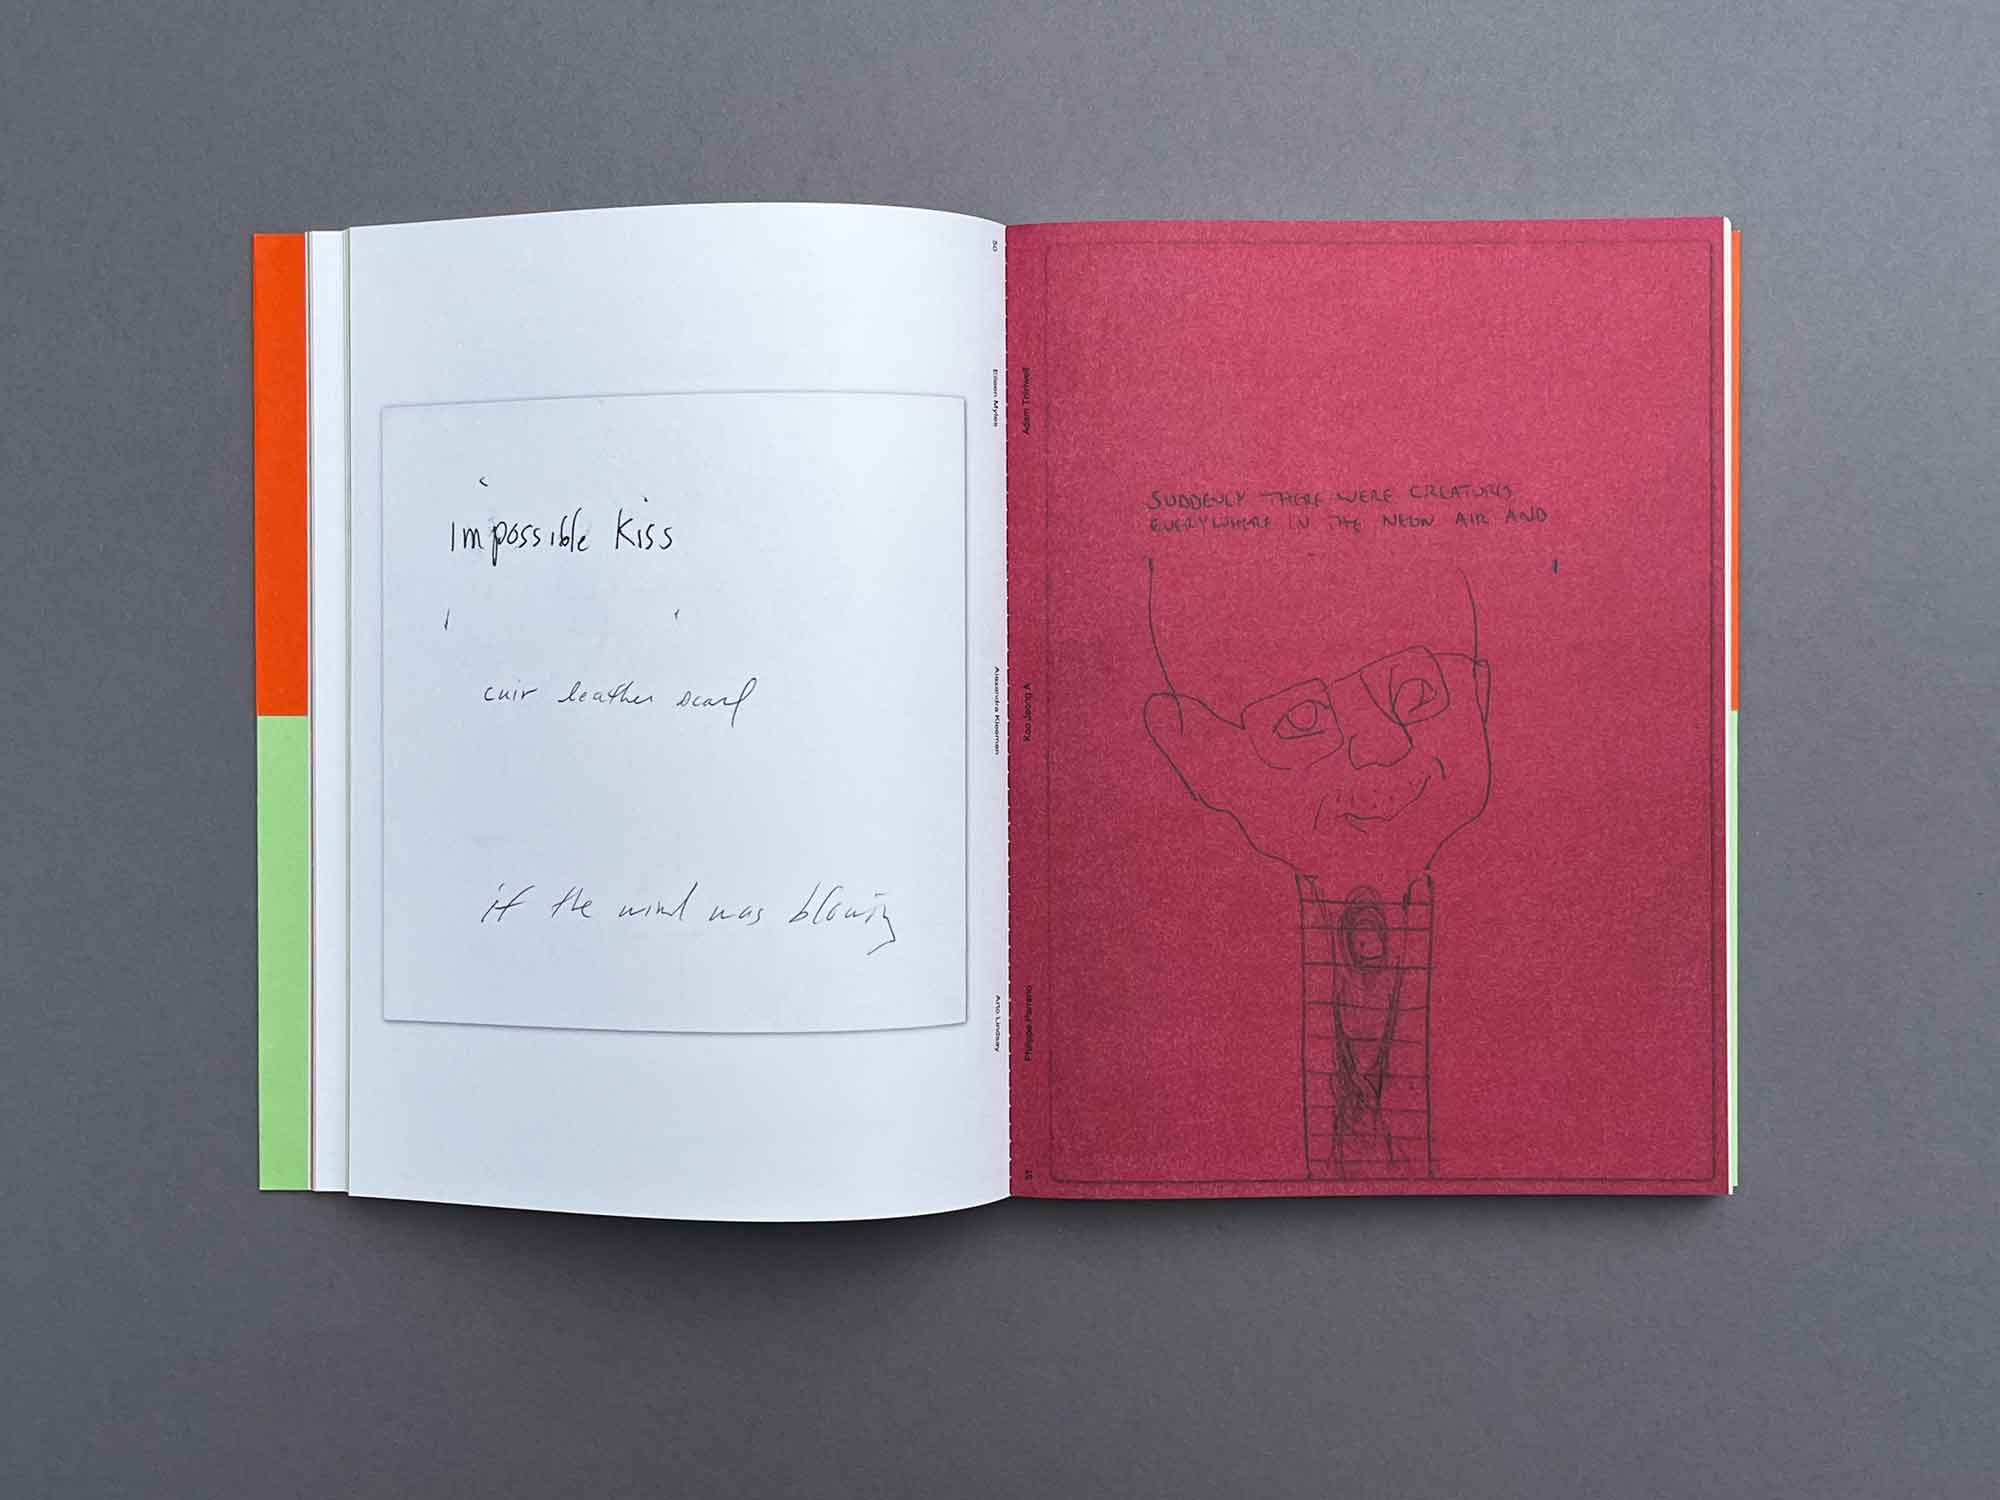 50
Eileen Myles
Alexandra Kleeman
Arto Lindsay
impossible kiss
cuir leather scarf
if the wind was blowing
Adam Thirlwell
Koo Jeong A
Philippe Parreno
51
SUDDENLY THERE WERE CREATURES
EVERYWHERE IN THE NEON AIR AND